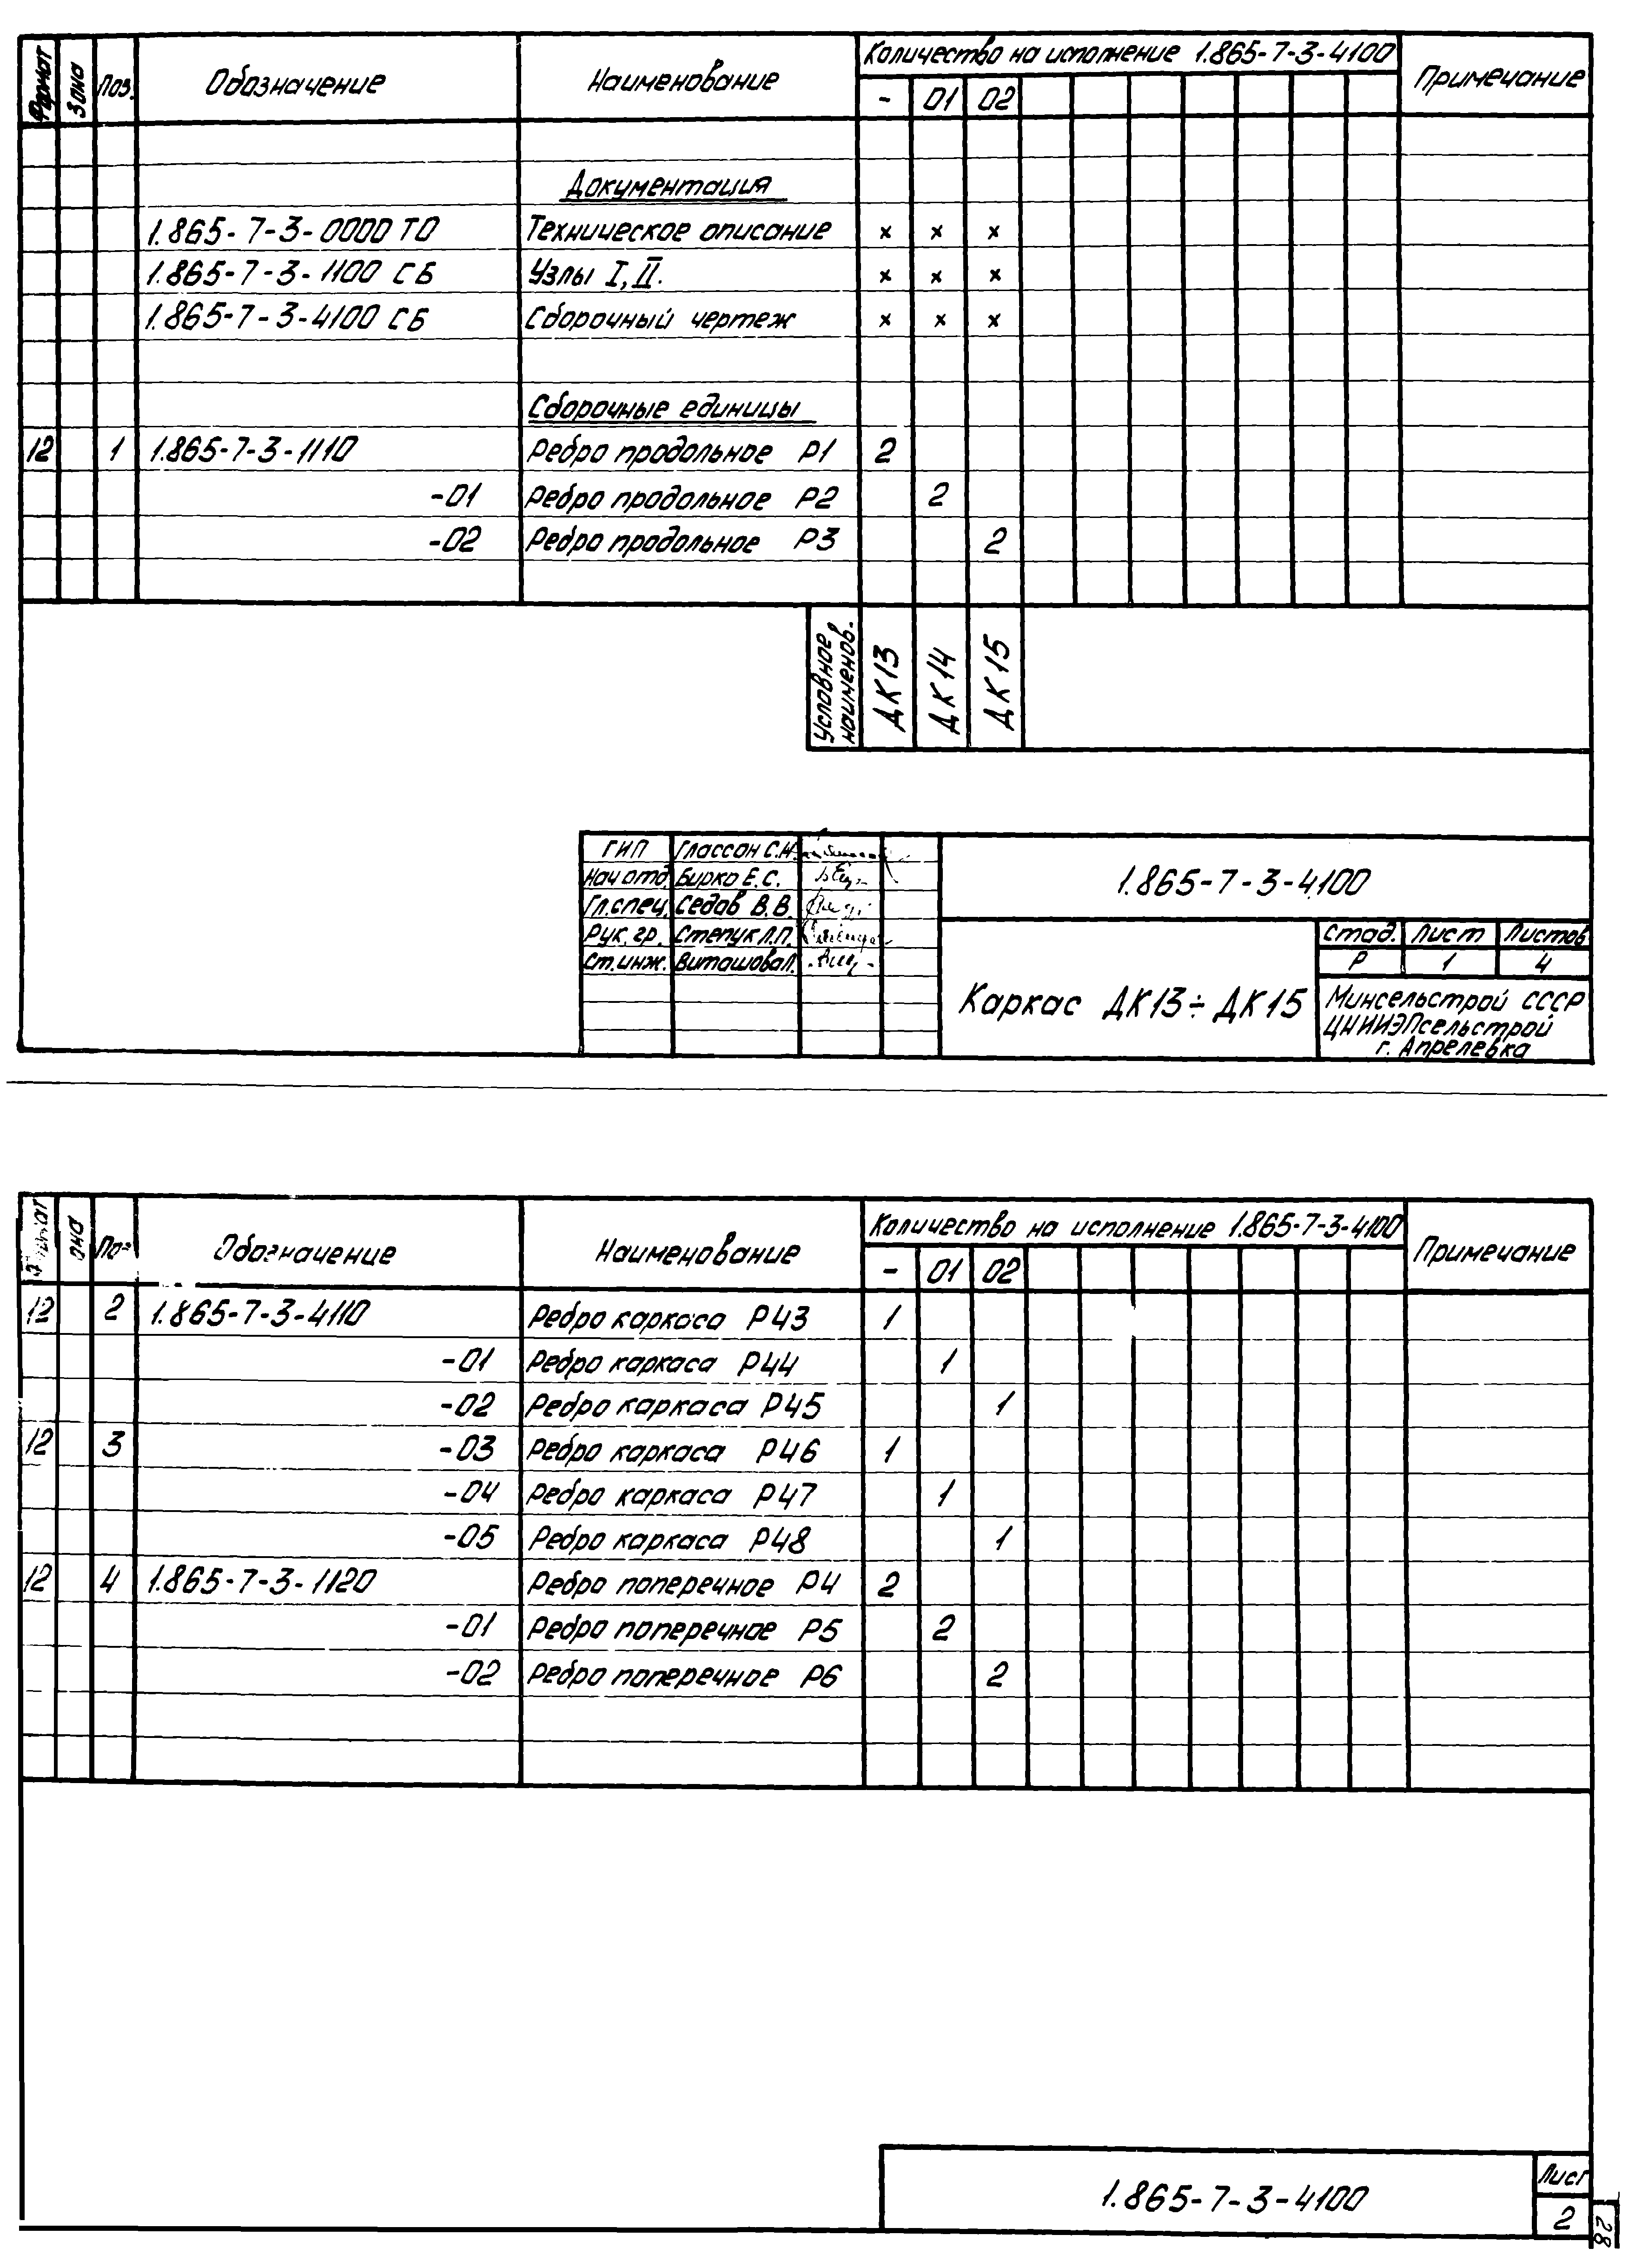 Формат Зона Поз. Обозначение Наименование Количество на исполнение 1.865-7-3-4100 Примечание
- 01 02
Документация
1.865-7-3-0000 ТО Техническое описание x x x
1.865-7-3-1100 СБ Узлы I, II. x x x
1.865-7-3-4100 СБ Сборочный чертеж x x x
Сборочные единицы
12 1 1.865-7-3-1110 Ребро продольное Р1 2
-01 Ребро продольное Р2 2
-02 Ребро продольное Р3 2
Условное наименов. ДК13 ДК14 ДК15
ГИП Глассон С.Н.
Нач отд. Бирко Е.С.
Гл.спец. Седов В.В.
Рук. гр. Степук Л.П.
Ст.инж. Виташова Л.
1.865-7-3-4100
Каркас ДК13÷ДК15
Стад. Лист Листов
Р 1 4
Минсельстрой СССР
ЦНИИЭПсельстрой
г. Апрелевка
Обозначение Наименование Количество на исполнение 1.865-7-3-4100 Примечание
- 01 02
12 2 1.865-7-3-4110 Ребро каркаса Р43 1
-01 Ребро каркаса Р44 1
-02 Ребро каркаса Р45 1
12 3 -03 Ребро каркаса Р46 1
-04 Ребро каркаса Р47 1
-05 Ребро каркаса Р48 1
12 4 1.865-7-3-1120 Ребро поперечное Р4 2
-01 Ребро поперечное Р5 2
-02 Ребро поперечное Р6 2
1.865-7-3-4100
Лист
2
28